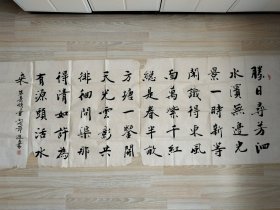 勝日尋芳泗
水濱無邊光
景一時新等
閒識得東風
面萬紫千紅
總是春半畝
方塘一鑒開
天光雲影共
徘徊問渠那
得清如許為
有源頭活水
來